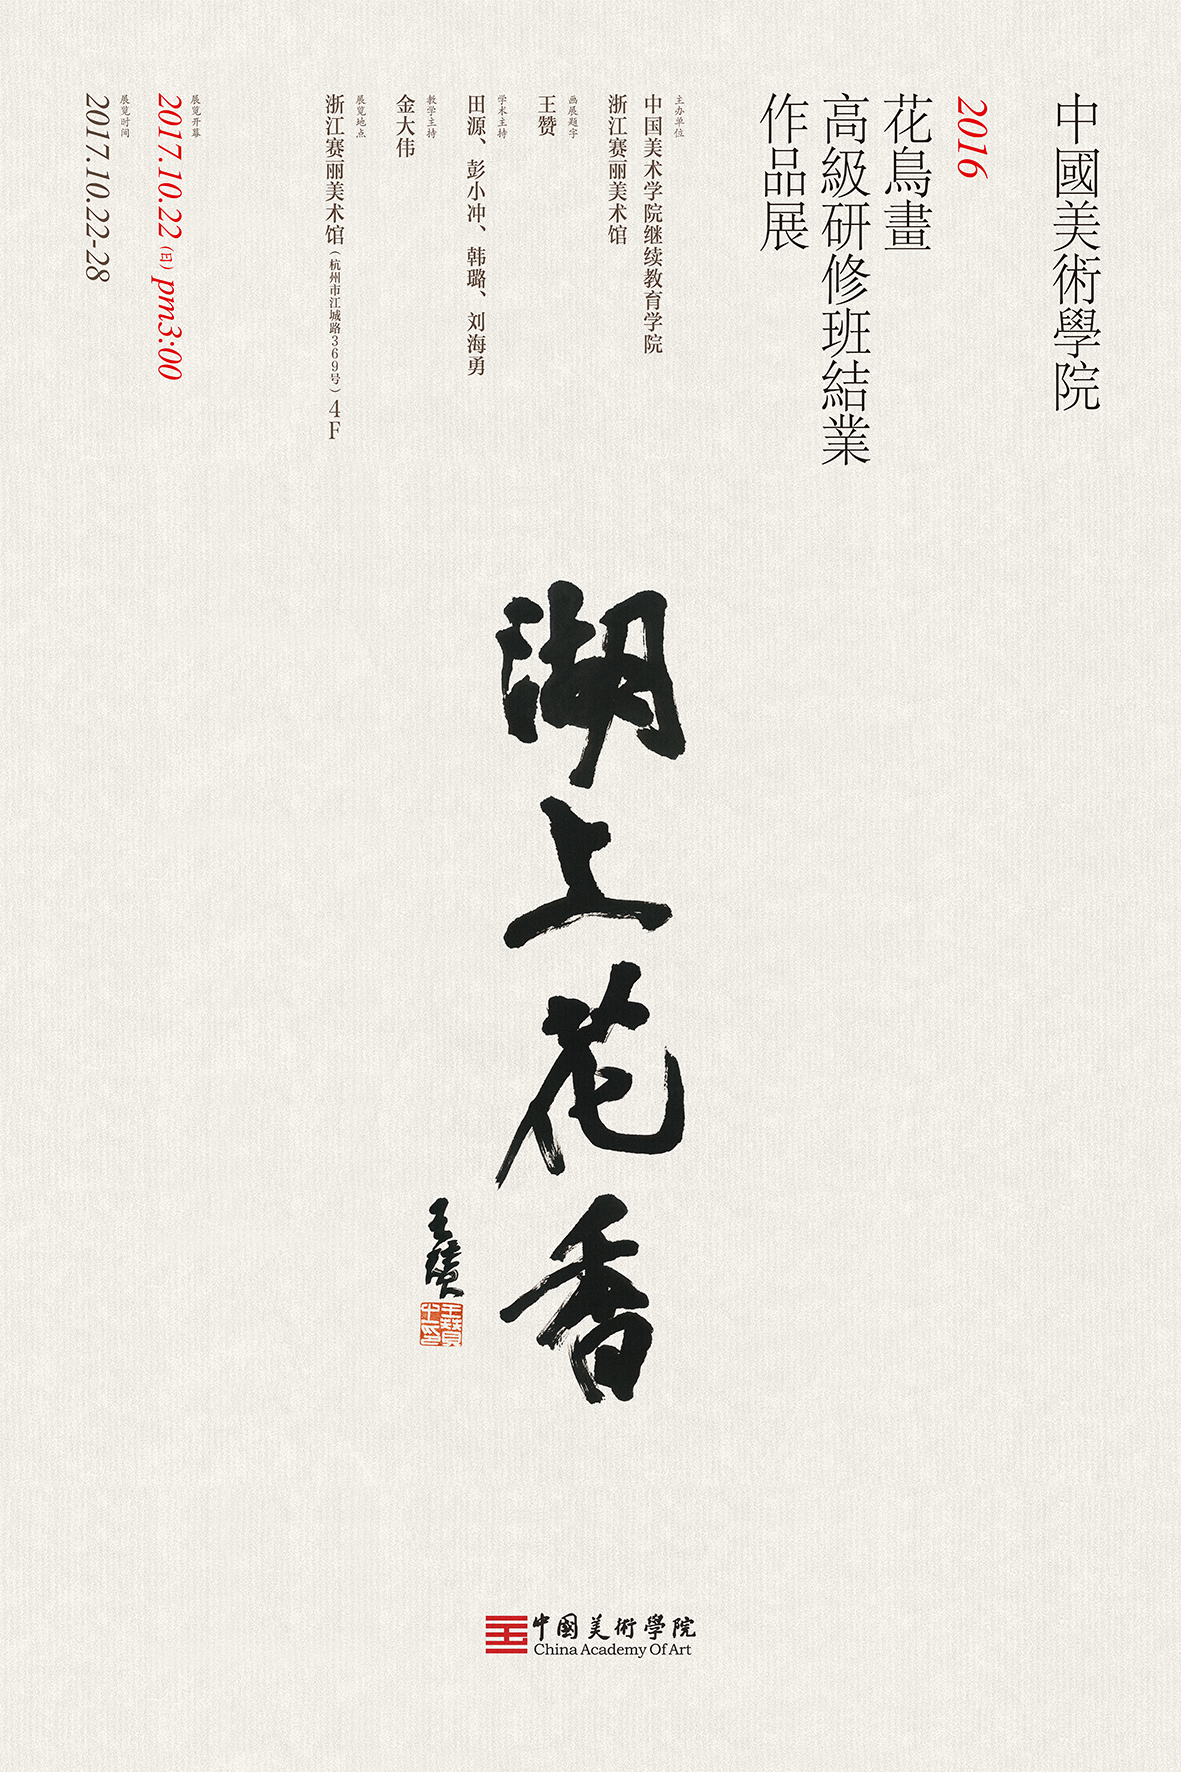 中國美術學院
2016
花鳥畫
高級研修班結業
作品展
主办单位
中国美术学院继续教育学院
浙江赛丽美术馆
画展题字
王赞
学术主持
田源、彭小冲、韩璐、刘海勇
教学主持
金大伟
展览地点
浙江赛丽美术馆（杭州市江城路369号）4F
展览开幕
2017.10.22（日）pm3:00
展览时间
2017.10.22-28
湖上花香
王赞
中國美術學院
China Academy Of Art